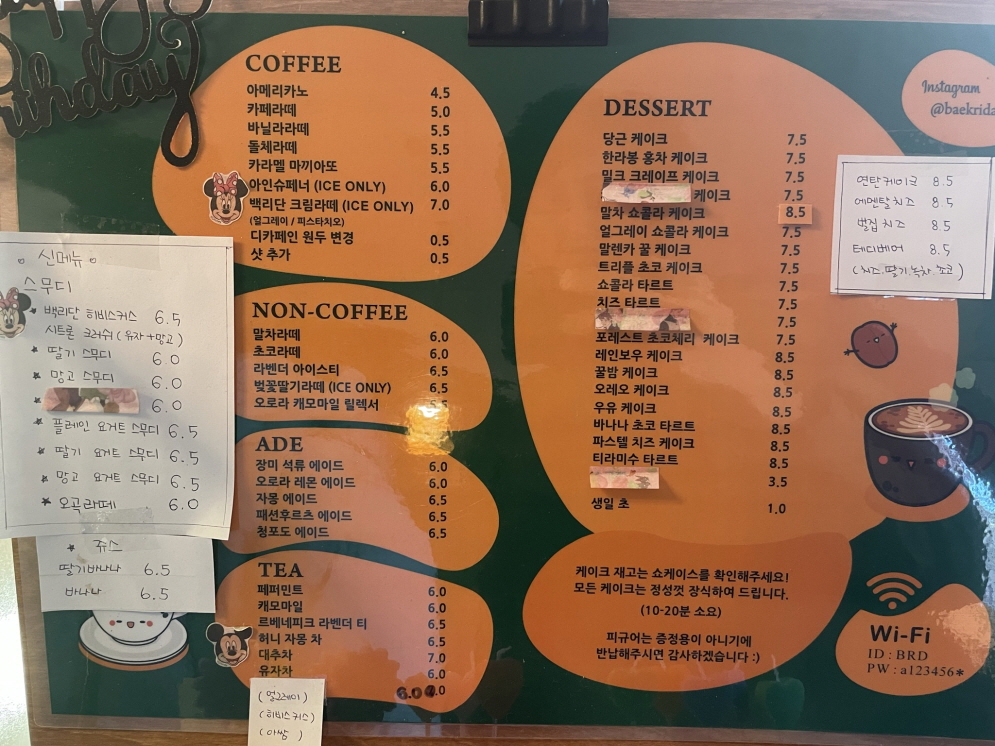 thday
COFFEE
아메리카노 4.5
카페라떼 5.0
바닐라라떼 5.5
돌체라떼 5.5
카라멜 마끼아또 5.5
아인슈페너 (ICE ONLY) 6.0
백리단 크림라떼 (ICE ONLY) 7.0
(얼그레이 / 피스타치오)
디카페인 원두 변경 0.5
샷 추가 0.5
NON-COFFEE
말차라떼 6.0
초코라떼 6.0
라벤더 아이스티 6.5
벚꽃딸기라떼 (ICE ONLY) 6.5
오로라 캐모마일 릴렉서
ADE
장미 석류 에이드 6.0
오로라 레몬 에이드 6.0
자몽 에이드 6.5
패션후르츠 에이드 6.5
청포도 에이드 6.5
TEA
페퍼민트 6.0
캐모마일 6.0
르베네피크 라벤더 티 6.5
허니 자몽 차 6.5
대추차 7.0
유자차 6.0
6.0
(얼그레이)
(히비스커스)
(아쌈)
신메뉴
스무디
백리단 히비스커스 6.5
시트론 크러쉬 (유자+망고)
딸기 스무디 6.0
망고 스무디 6.0
6.0
플레인 요거트 스무디 6.5
딸기 요거트 스무디 6.5
망고 요거트 스무디 6.5
오곡라떼 6.0
쥬스
딸기바나나 6.5
바나나 6.5
DESSERT
당근 케이크 7.5
한라봉 홍차 케이크 7.5
밀크 크레이프 케이크 7.5
케이크 7.5
말차 쇼콜라 케이크 8.5
얼그레이 쇼콜라 케이크 7.5
말렌카 꿀 케이크 7.5
트리플 초코 케이크 7.5
쇼콜라 타르트 7.5
치즈 타르트 7.5
7.5
포레스트 초코체리 케이크 7.5
레인보우 케이크 8.5
꿀밤 케이크 8.5
오레오 케이크 8.5
우유 케이크 8.5
바나나 초코 타르트 8.5
파스텔 치즈 케이크 8.5
티라미수 타르트 8.5
3.5
생일 초 1.0
케이크 재고는 쇼케이스를 확인해주세요!
모든 케이크는 정성껏 장식하여 드립니다.
(10-20분 소요)
피규어는 증정용이 아니기에
반납해주시면 감사하겠습니다 :)
Instagram
@baekrida
연탄케이크 8.5
에멘탈치즈 8.5
벌집 치즈 8.5
테디베어 8.5
(치즈.딸기.녹차.쵸코)
Wi-Fi
ID : BRD
PW : a123456*